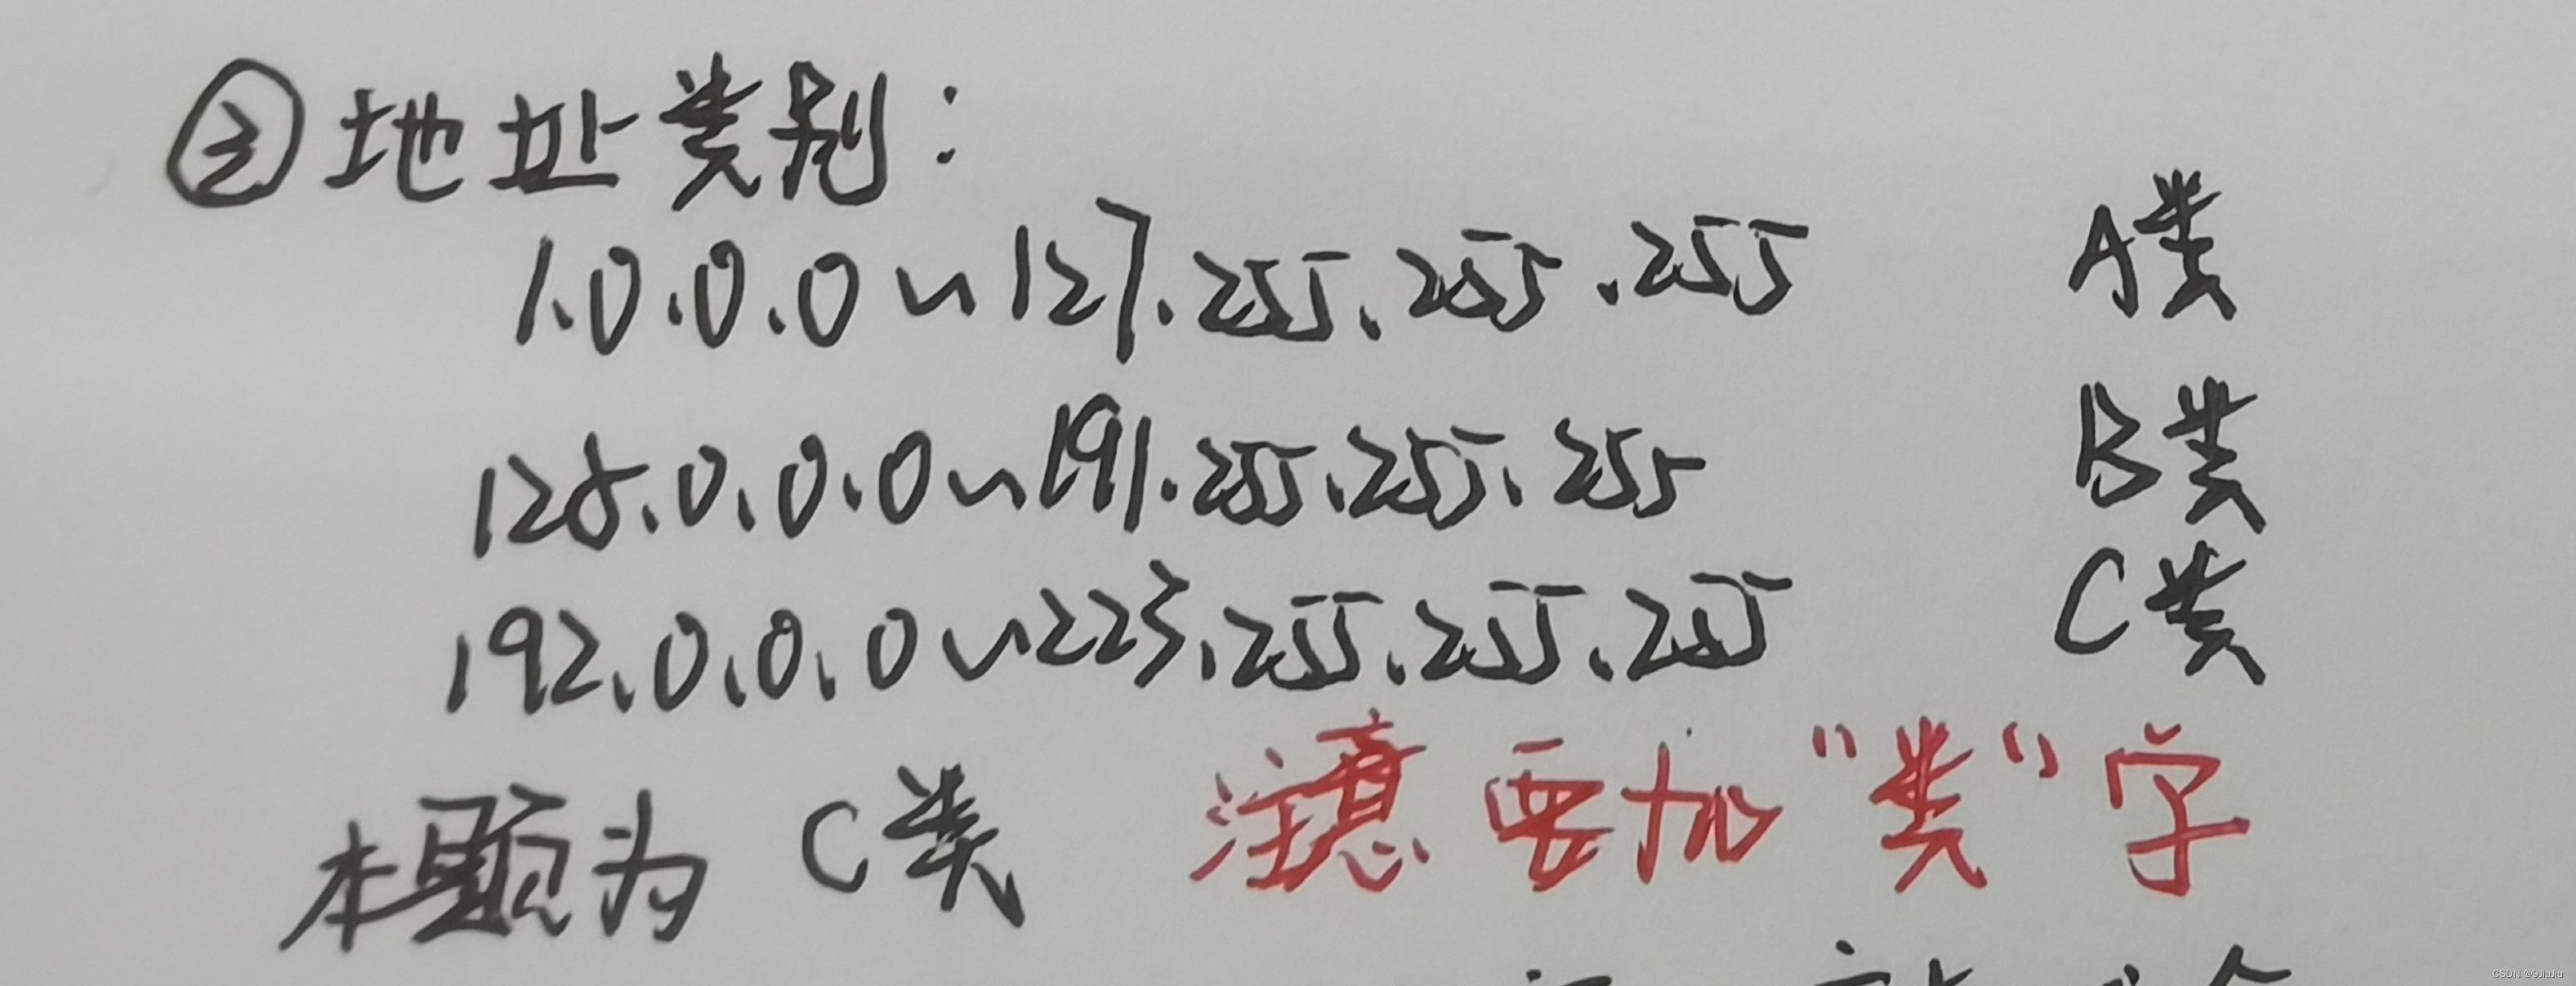 ②地址类别：
1.0.0.0~127.255.255.255 A类
128.0.0.0~191.255.255.255 B类
192.0.0.0~223.255.255.255 C类
本题为 C类 注意要加“类”字
CSDN @9JiuJiu